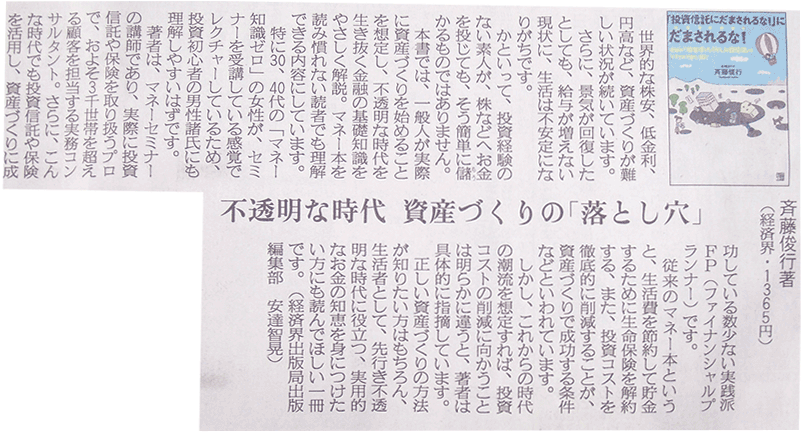 「投資信託にだまされるな!」に
だまされるな!
斉藤俊行
斉藤俊行著
(経済界・1365円)
不透明な時代 資産づくりの「落とし穴」
世界的な株安、低金利、
円高など、資産づくりが難
しい状況が続いています。
さらに、景気が回復した
としても、給与が増えない
現状に、生活は不安定にな
りがちです。
かといって、投資経験の
ない素人が、株などへお金
を投じても、そう簡単に儲
かるものではありません。
本書では、一般人が実際
に資産づくりを始めること
を想定し、不透明な時代を
生き抜く金融の基礎知識を
やさしく解説。マネー本を
読み慣れない読者でも理解
できる内容にしています。
特に30、40代の「マネー
知識ゼロ」の女性が、セミ
ナーを受講している感覚で
レクチャーしているため、
投資初心者の男性諸氏にも
理解しやすいはずです。
著者は、マネーセミナー
の講師であり、実際に投資
信託や保険を取り扱うプロ
で、およそ3千世帯を超え
る顧客を担当する実務コン
サルタント。さらに、こん
な時代でも投資信託や保険
を活用し、資産づくりに成
功している数少ない実践派
FP(ファイナンシャルプ
ランナー)です。
従来のマネー本という
と、生活費を節約して貯金
するために生命保険を解約
する、また、投資コストを
徹底的に削減することが、
資産づくりで成功する条件
などといわれています。
しかし、これからの時代
の潮流を想定すれば、投資
コストの削減に向かうこと
は明らかに違うと、著者は
具体的に指摘しています。
正しい資産づくりの方法
が知りたい方はもちろん、
生活者として、先行き不透
明な時代に役立つ、実用的
なお金の知恵を身につけた
い方にも読んでほしい一冊
です。(経済界出版局出版
編集部 安達智晃)